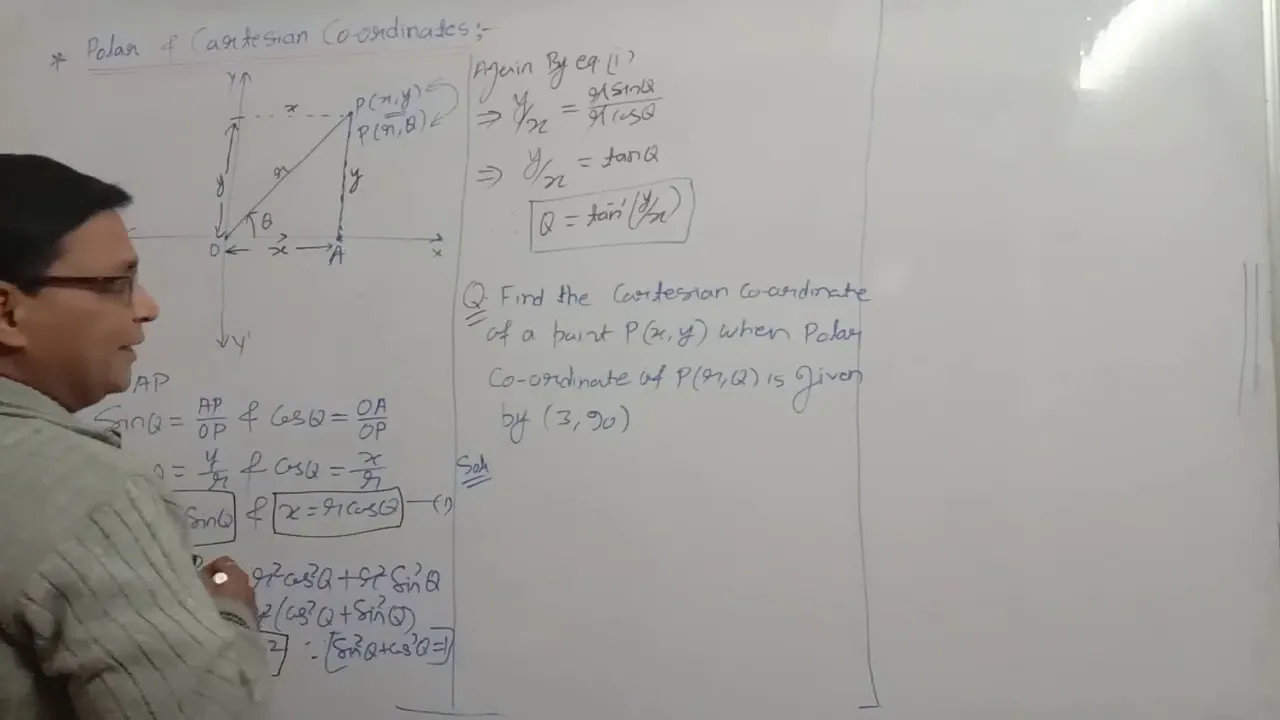 * Polar & Cartesian Co-ordinates:-
Y
x
P(x,y)
P(r,Q)
y
r
y
θ
O
x
A
X
Y'
AP
SinQ = AP/OP & CosQ = OA/OP
= y/r & cosQ = x/r
SinQ & x = rcosQ —(1)
r²cos²Q + r² Sin²Q
²(cos²Q + Sin²Q)
2 ∵ [Sin²Q + cos²Q = 1]
Again By eq (1)
⇒ y/x = rSinQ/rCosQ
⇒ y/x = tanQ
Q = tan⁻¹(y/x)
Q. Find the Cartesian Co-ordinate
of a point P(x,y) when Polar
Co-ordinate of P(r,Q) is given
by (3,90)
Soln